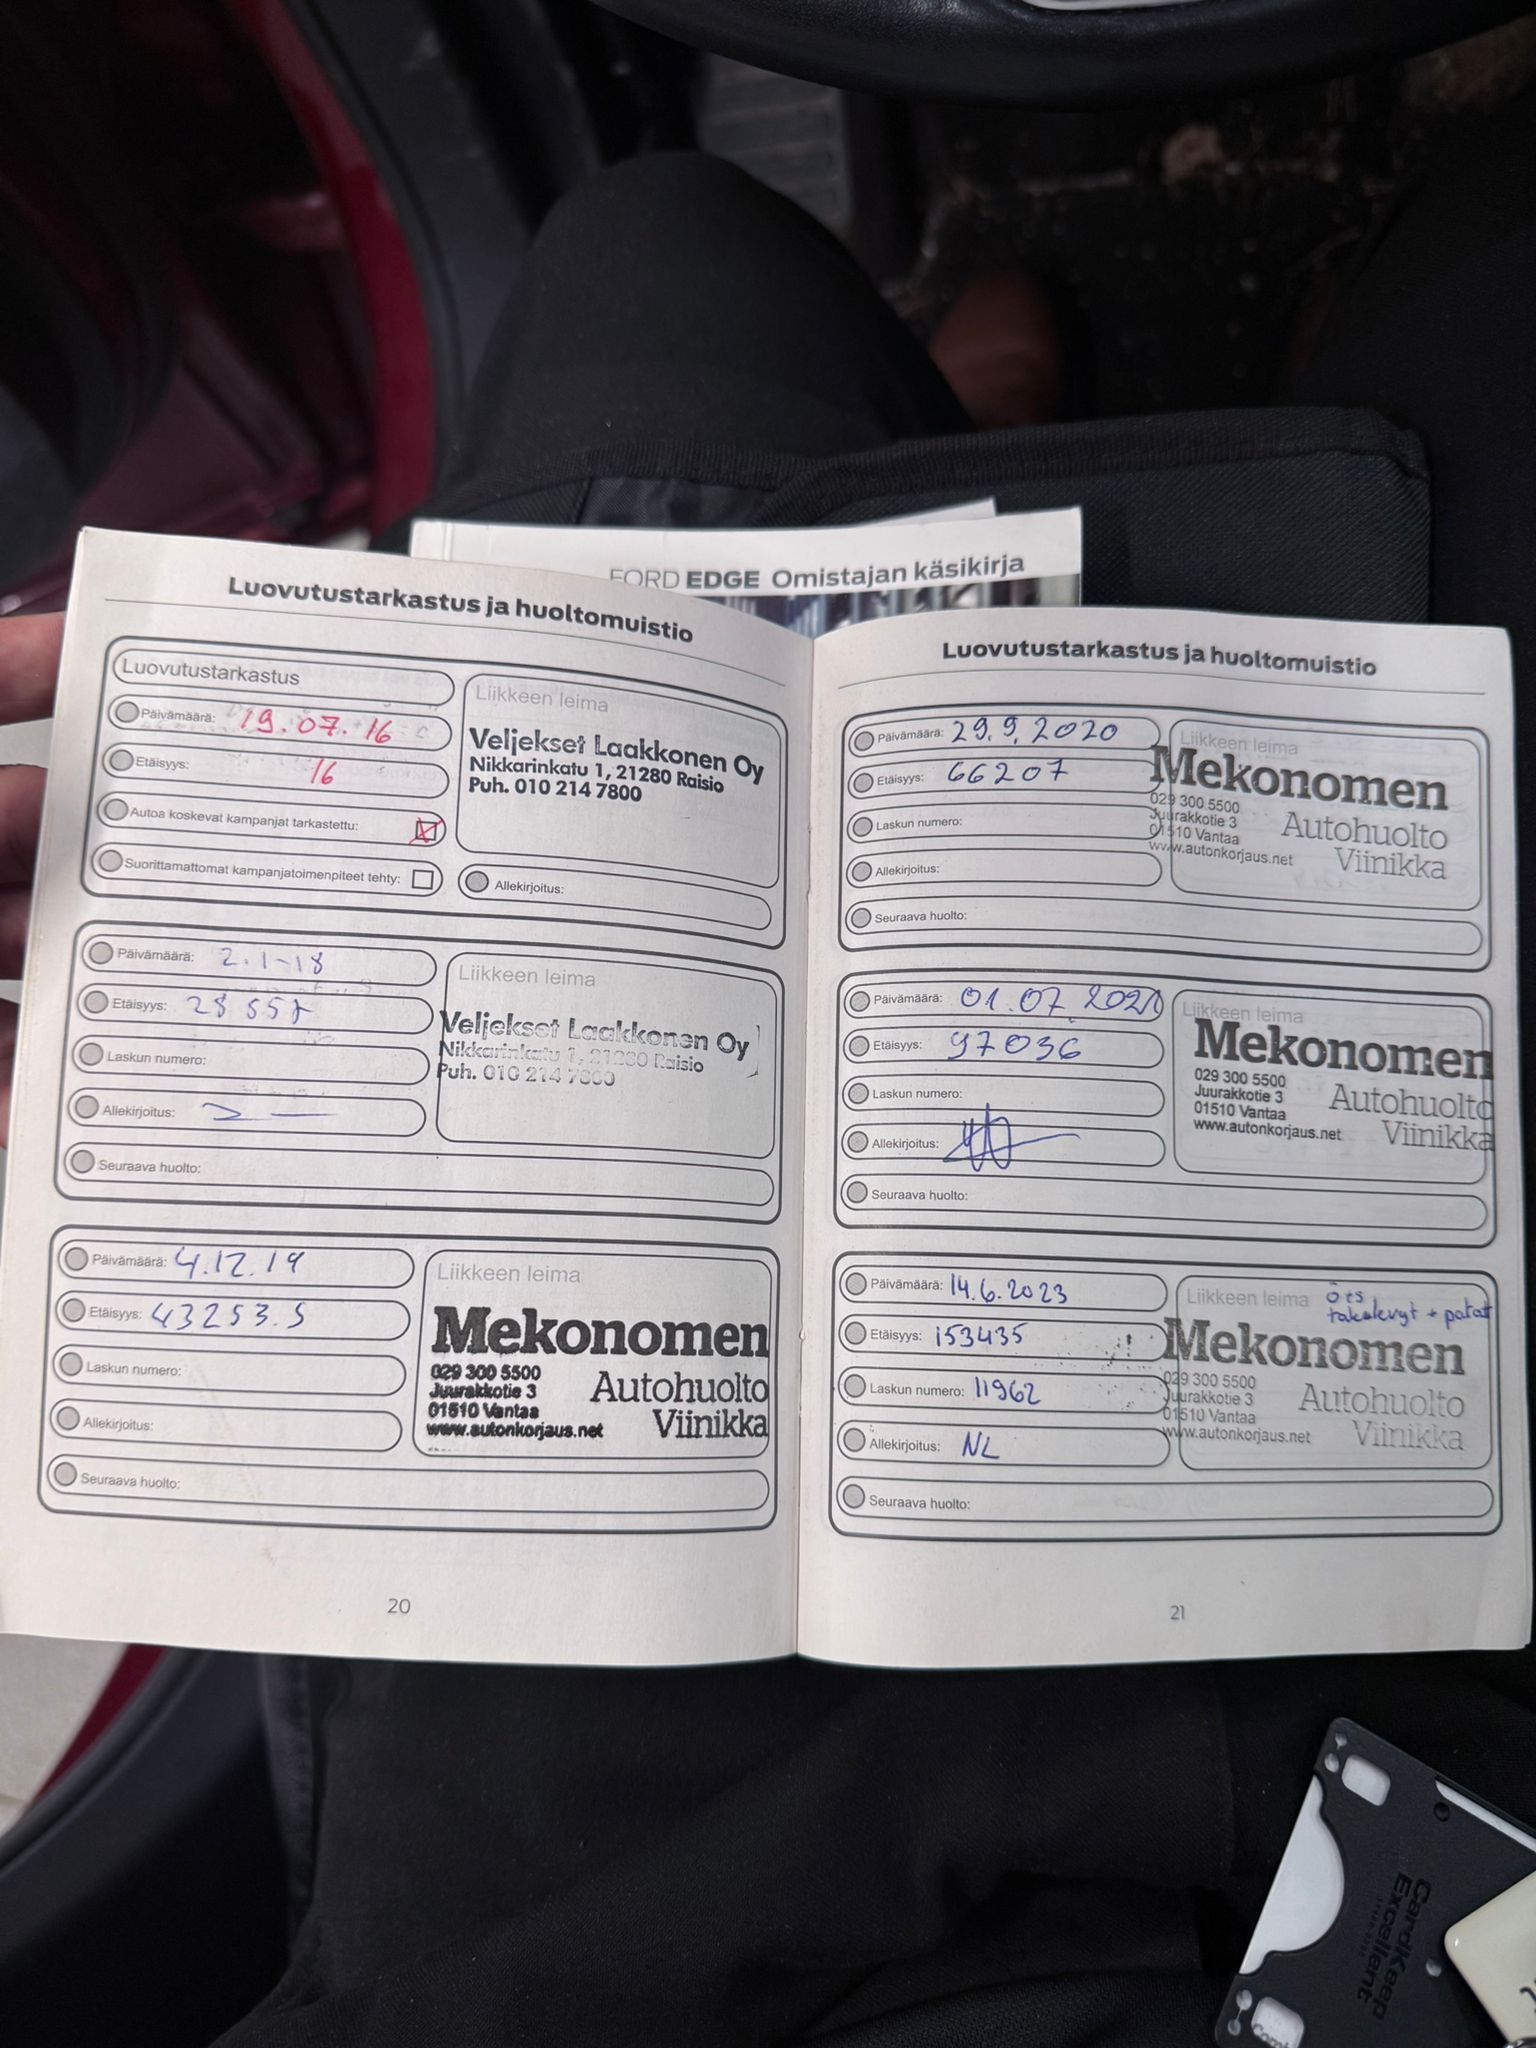 FORD EDGE Omistajan käsikirja
Luovutustarkastus ja huoltomuistio
Luovutustarkastus
Päivämäärä: 19.07.16
Etäisyys: 16
Autoa koskevat kampanjat tarkastettu:
Suorittamattomat kampanjatoimenpiteet tehty:
Liikkeen leima
Veljekset Laakkonen Oy
Nikkarinkatu 1, 21280 Raisio
Puh. 010 214 7800
Allekirjoitus:
Päivämäärä: 2.1-18
Etäisyys:
Laskun numero:
Allekirjoitus:
Seuraava huolto:
Liikkeen leima
Veljekset Laakkonen Oy
Nikkarinkatu 1, 21280 Raisio
Puh. 010 214 7800
Päivämäärä: 4.12.19
Etäisyys: 43253.5
Laskun numero:
Allekirjoitus:
Seuraava huolto:
Liikkeen leima
Mekonomen
029 300 5500
Juurakkotie 3
01510 Vantaa
www.autonkorjaus.net
Autohuolto
Viinikka
20
Luovutustarkastus ja huoltomuistio
Päivämäärä: 29.9.2020
Etäisyys: 66207
Laskun numero:
Allekirjoitus:
Seuraava huolto:
Liikkeen leima
Mekonomen
029 300 5500
Juurakkotie 3
01510 Vantaa
www.autonkorjaus.net
Autohuolto
Viinikka
Päivämäärä: 01.07.2021
Etäisyys: 97036
Laskun numero:
Allekirjoitus:
Seuraava huolto:
Liikkeen leima
Mekonomen
029 300 5500
Juurakkotie 3
01510 Vantaa
www.autonkorjaus.net
Autohuolto
Viinikka
Päivämäärä: 14.6.2023
Etäisyys: 153435
Laskun numero: 11962
Allekirjoitus: NL
Seuraava huolto:
Liikkeen leima
öts
takalevyt + palat
Mekonomen
029 300 5500
Juurakkotie 3
01510 Vantaa
www.autonkorjaus.net
Autohuolto
Viinikka
21
CardKeep
Excellent